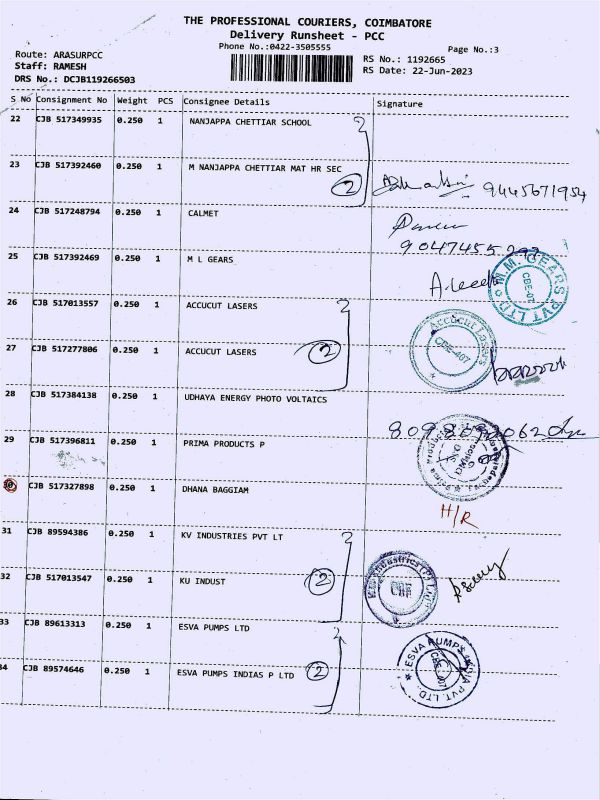 THE PROFESSIONAL COURIERS, COIMBATORE
Delivery Runsheet - PCC
Phone No.:0422-3505555
Page No.:3
Route: ARASURPCC
Staff: RAMESH
DRS No.: DCJB119266503
RS No.: 1192665
RS Date: 22-Jun-2023
S No Consignment No Weight PCS Consignee Details Signature
22 CJB 517349935 0.250 1 NANJAPPA CHETTIAR SCHOOL
23 CJB 517392460 0.250 1 M NANJAPPA CHETTIAR MAT HR SEC
2 9445671954
24 CJB 517248794 0.250 1 CALMET
25 CJB 517392469 0.250 1 M L GEARS
M.M. GEARS PVT. LTD
26 CJB 517013557 0.250 1 ACCUCUT LASERS
Accucut Lasers
CBE-407
27 CJB 517277806 0.250 1 ACCUCUT LASERS 2
28 CJB 517384138 0.250 1 UDHAYA ENERGY PHOTO VOLTAICS
8098092062
29 CJB 517396811 0.250 1 PRIMA PRODUCTS P
30 CJB 517327898 0.250 1 DHANA BAGGIAM
H/R
31 CJB 89594386 0.250 1 KV INDUSTRIES PVT LT
32 CJB 517013547 0.250 1 KU INDUST 2
33 CJB 89613313 0.250 1 ESVA PUMPS LTD
34 CJB 89574646 0.250 1 ESVA PUMPS INDIAS P LTD 2
ESVA PUMPS INDIA PVT. LTD.